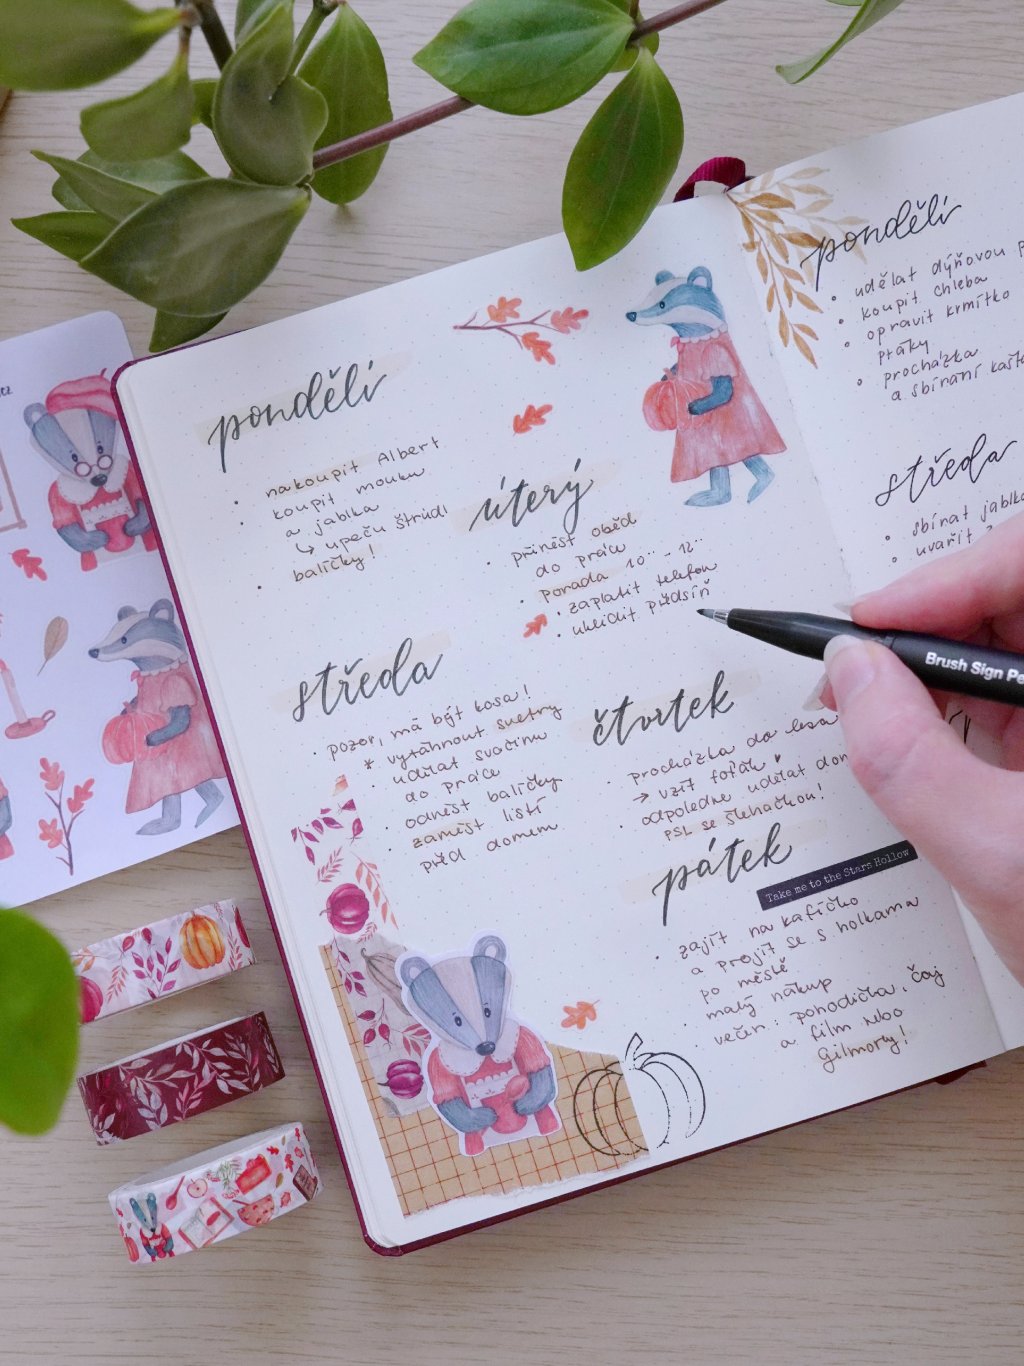 pondělí
• nakoupit Albert
• koupit mouku
a jablka
↳ upeču štrúdl
• balíčky!
úterý
• přinést oběd
do práce
• porada 10⁰⁰ - 12⁰⁰
• zaplatit telefon
• uklidit předsíň
středa
• pozor, má být kosa!
* vytáhnout svetry
• udělat svačinu
do práce
• odnést balíčky
• zamést listí
před domem
čtvrtek
• procházka do lesa
→ vzít foťák ♥
• odpoledne udělat
PSL se šlehačkou!
pátek
Take me to the Stars Hollow
• zajít na kafíčko
a projít se s holkama
po městě
• malý nákup
• večer: pohodička, čaj
a film nebo
Gilmorky!
pondělí
• udělat dýňovou
• koupit chleba
• opravit krmítko
ptáky
• procházka
a sbírání
středa
• sbírat
• uvařit
Brush Sign